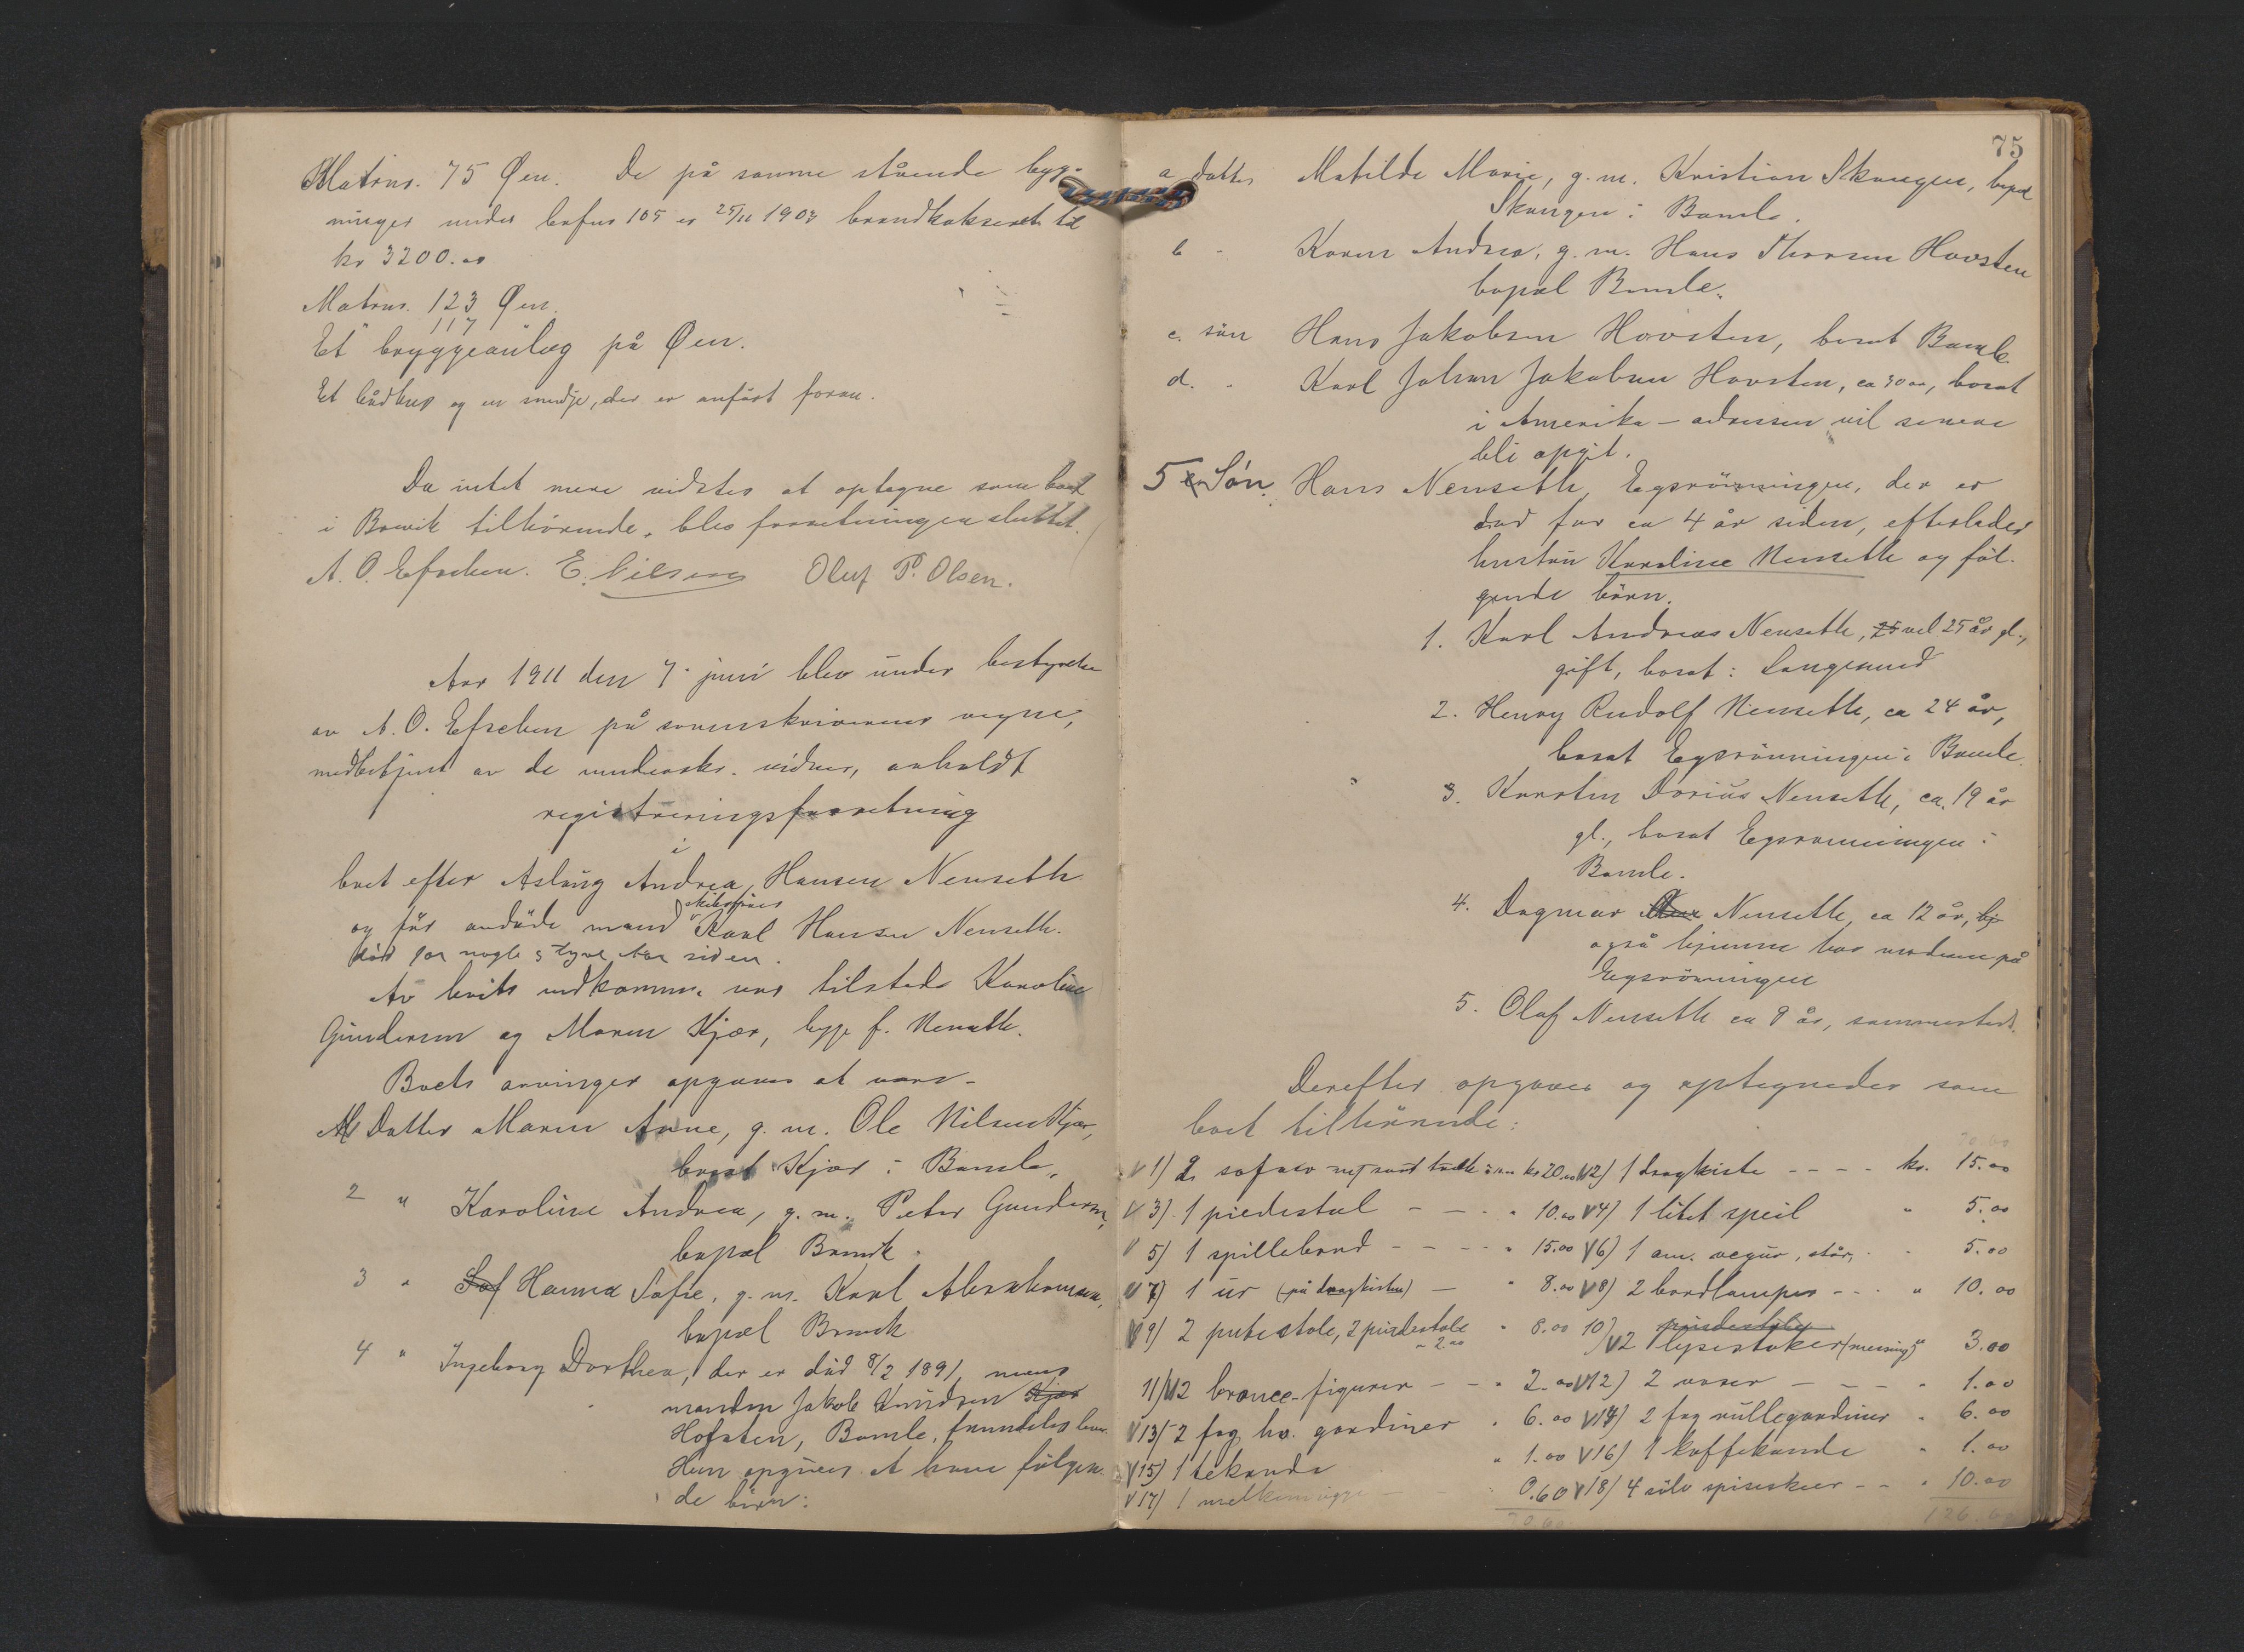 Matrnr. 75 Øen. De på samme stående byg-
ninger under br 105 er 25/11 1903 brandtakseret til
kr 3200.00
Matrnr. 123 Øen.
117
Et bryggeanlæg på Øen.
Et bådhus og en smedje, der er anført foran.
Da intet mere vidstes at optegne som boet
i Brevik tilhørende, blev forretningen sluttet.
A. O. Efseben. E. Nilsen Oluf P. Olsen.
Aar 1911 den 7. juni blev under bestyrelse
av A. O. Efseben på sorenskriverens vegne,
medbetjent av de underskr. vidner, avholdt
registreringsforretning
i
boet efter Aslaug Andrea Hansen Nenseth
og før avdøde mand skibsfører Karl Hansen Nenseth.
død for nogle og tyve Aar siden.
Av boets vedkommende var tilstede Karoline
Gundersen og Maren Kjær, begge f. Nenseth.
Boets arvinger opgaves at være-
1 Datter Maren Anne, g. m. Ole Nilsen Kjær,
bosat Kjær i Bamle,
2 " Karoline Andrea, g. m. Peter Gundersen,
bopæl Brevik.
3 " Sof Hanna Sofie, g. m. Karl Abrahamsen,
bopæl Brevik
4 " Ingeborg Dorthea, der er død 8/2 1891, mens
manden Jakob Knudsen Kjær
Hofsten, Bamle, fremdeles lever.
Hun opgives at have følgen-
de børn:
75
a datter Matilde Marie, g. m. Kristian Skaugen, bopæl
Skaugen i Bamle.
b - Karen Andrea, g. m. Hans Thorsen Hovsten
bopæl Bamle.
c. søn Hans Jakobsen Hovsten, bosat Bamle.
d. - Karl Johan Jakobsen Hovsten, ca 30 aar, bosat
i Amerika – adressen vil senere
bli opgit.
5 Søn. Hans Nenseth, Egsrønningen, der er
død for ca 4 år siden, efterlader
hustru Karoline Nenseth og føl-
gende børn.
1. Karl Andreas Nenseth, 25 vel 25 år gl.,
gift, bosat i Langesund
2. Henry Rudolf Nenseth, ca 24 år,
bosat Egsrønningen i Bamle.
3. Karsten Dorius Nenseth, ca. 19 år
gl., bosat Egsrønningen i
Bamle.
4. Dagmar Nenseth, ca 12 år, hj
også hjemme hos moderen på
Egsrønningen
5. Olaf Nenseth ca 8 år, sammesteds.
Derefter opgaves og optegnedes som
boet tilhørende:
1) 2 sofaer med sort trækk kr 20.00 2) 1 dragkiste - - - - kr. 15.00
3) 1 piedestal - - - " 10.00 4) 1 litet speil " 5.00
5) 1 spillebord - - - " 15.00 6) 1 am. vegur, står, - " 5.00
7) 1 ur (på dragkisten) - " 8.00 8) 2 bordlamper - - - " 10.00
9) 2 putestole, 2 piedestale " 8.00 10) piedestaler
" 2.00 2 lysestaker (messing) " 3.00
11) 2 bronce-figurer - - " 2.00 12) 2 vaser - - - " 1.00
13) 2 fag hv. gardiner " 6.00 14) 2 fag rullegardiner " 6.00
15) 1 tekande " 1.00 16) 1 kaffekande " 1.00
17) 1 melkemugge - 0.60 18) 4 sølv spiseskeer - - " 10.00
70.60 126.60